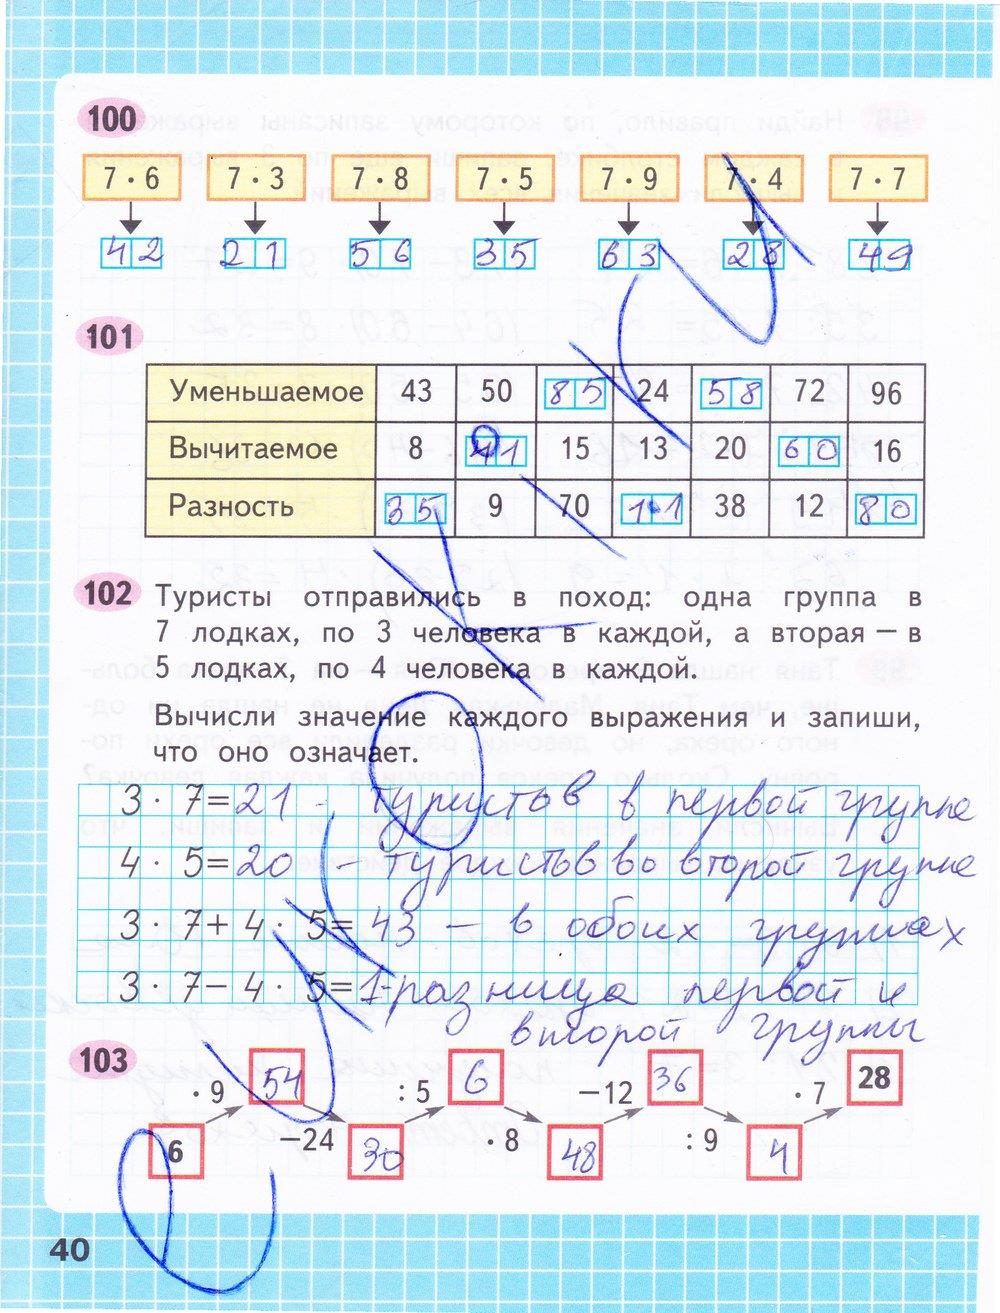 100
7 · 6 7 · 3 7 · 8 7 · 5 7 · 9 7 · 4 7 · 7
42 21 56 35 63 28 49
101
Уменьшаемое 43 50 85 24 58 72 96
Вычитаемое 8 41 15 13 20 60 16
Разность 35 9 70 11 38 12 80
102 Туристы отправились в поход: одна группа в
7 лодках, по 3 человека в каждой, а вторая — в
5 лодках, по 4 человека в каждой.
Вычисли значение каждого выражения и запиши,
что оно означает.
3 · 7 = 21 - туристов в первой группе
4 · 5 = 20 - туристов во второй группе
3 · 7 + 4 · 5 = 43 - в обоих группах
3 · 7 - 4 · 5 = 1 - разница первой и
второй группы
103
· 9 54 : 5 6 -12 36 · 7 28
6 -24 30 · 8 48 : 9 4
40